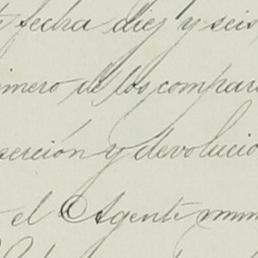 fecha diez y seis
imero de los compar
serción y devolucio
el Agente mun